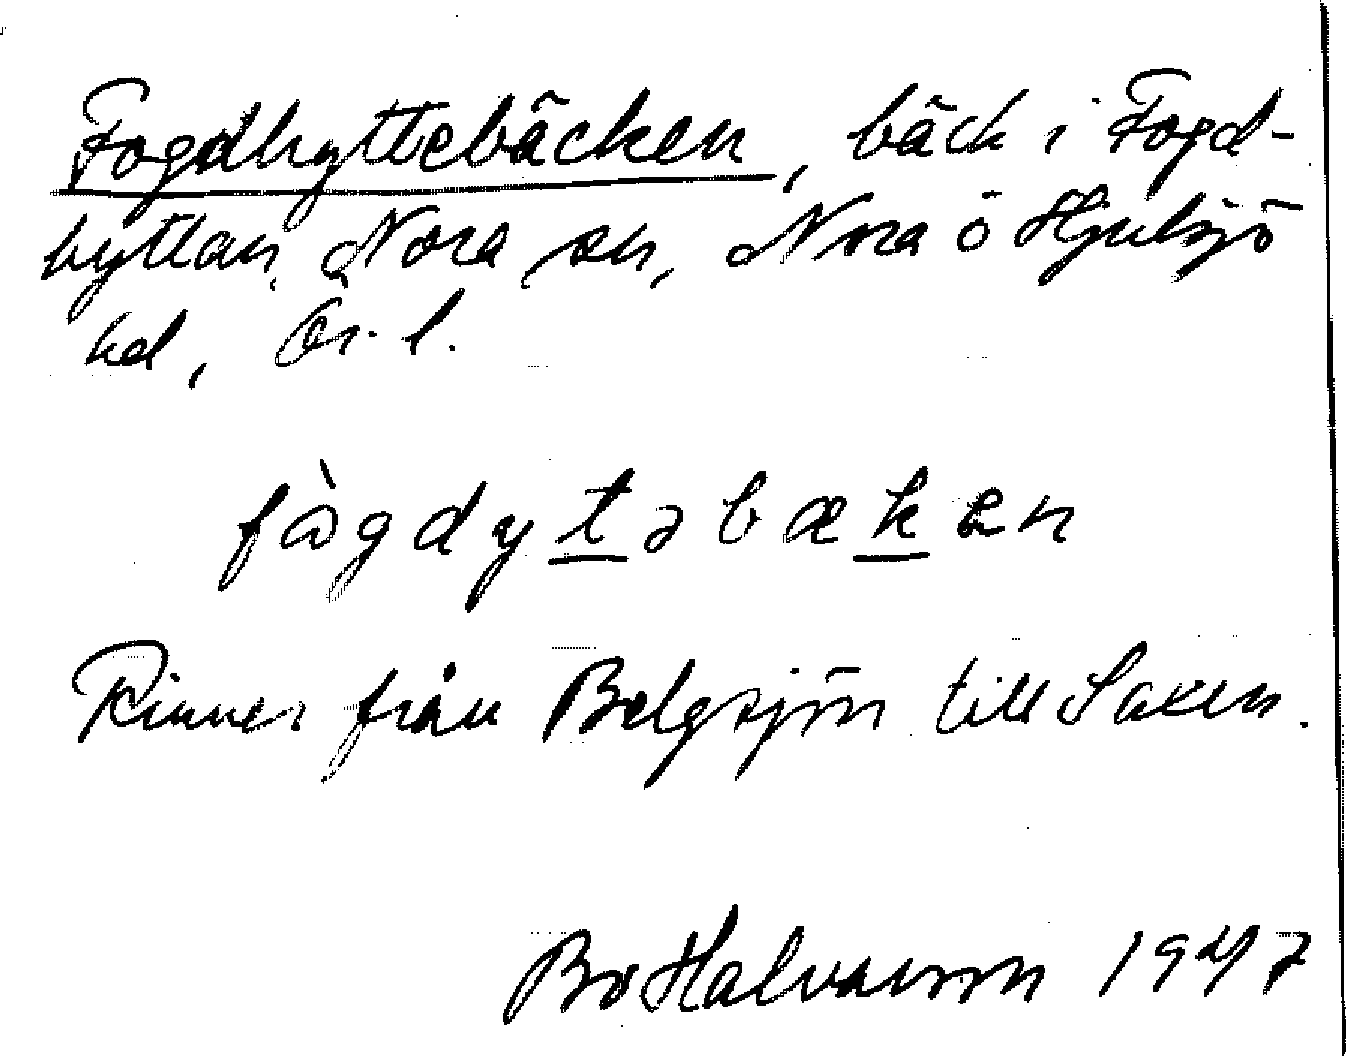 Fogdhyttebäcken, bäck i Fogd-
hyttan, Nora sn, Nora o Hjulsjö
hd, Ör. l.
fògdytəbækən
Rinner från Bälgsjön till Saxen.
Bo Halvarsson 1947